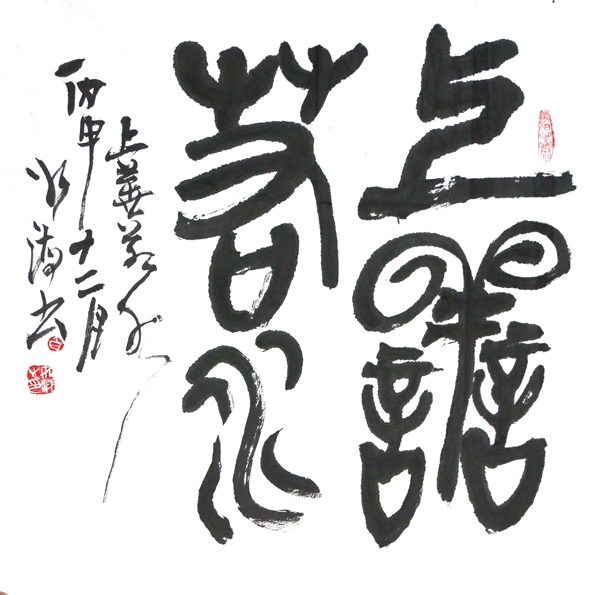 上譱
若水
上善若水
丙申十二月
书